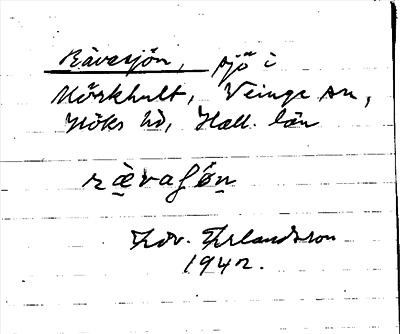 Rävasjön, sjö i
Mörkhult, Veinge sn,
Höks hd, Hall. län
rävaʃön
Edv. Erlandsson
1942.